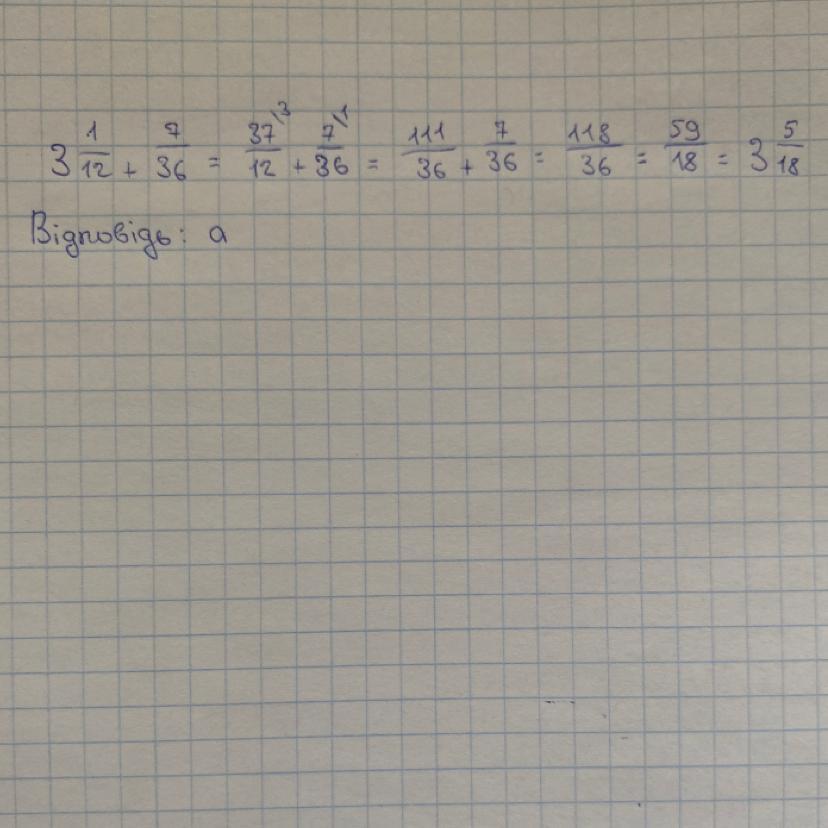 3 1/12 + 7/36 = 37\3/12 + 7\1/36 = 111/36 + 7/36 = 118/36 = 59/18 = 3 5/18
Відповідь: а